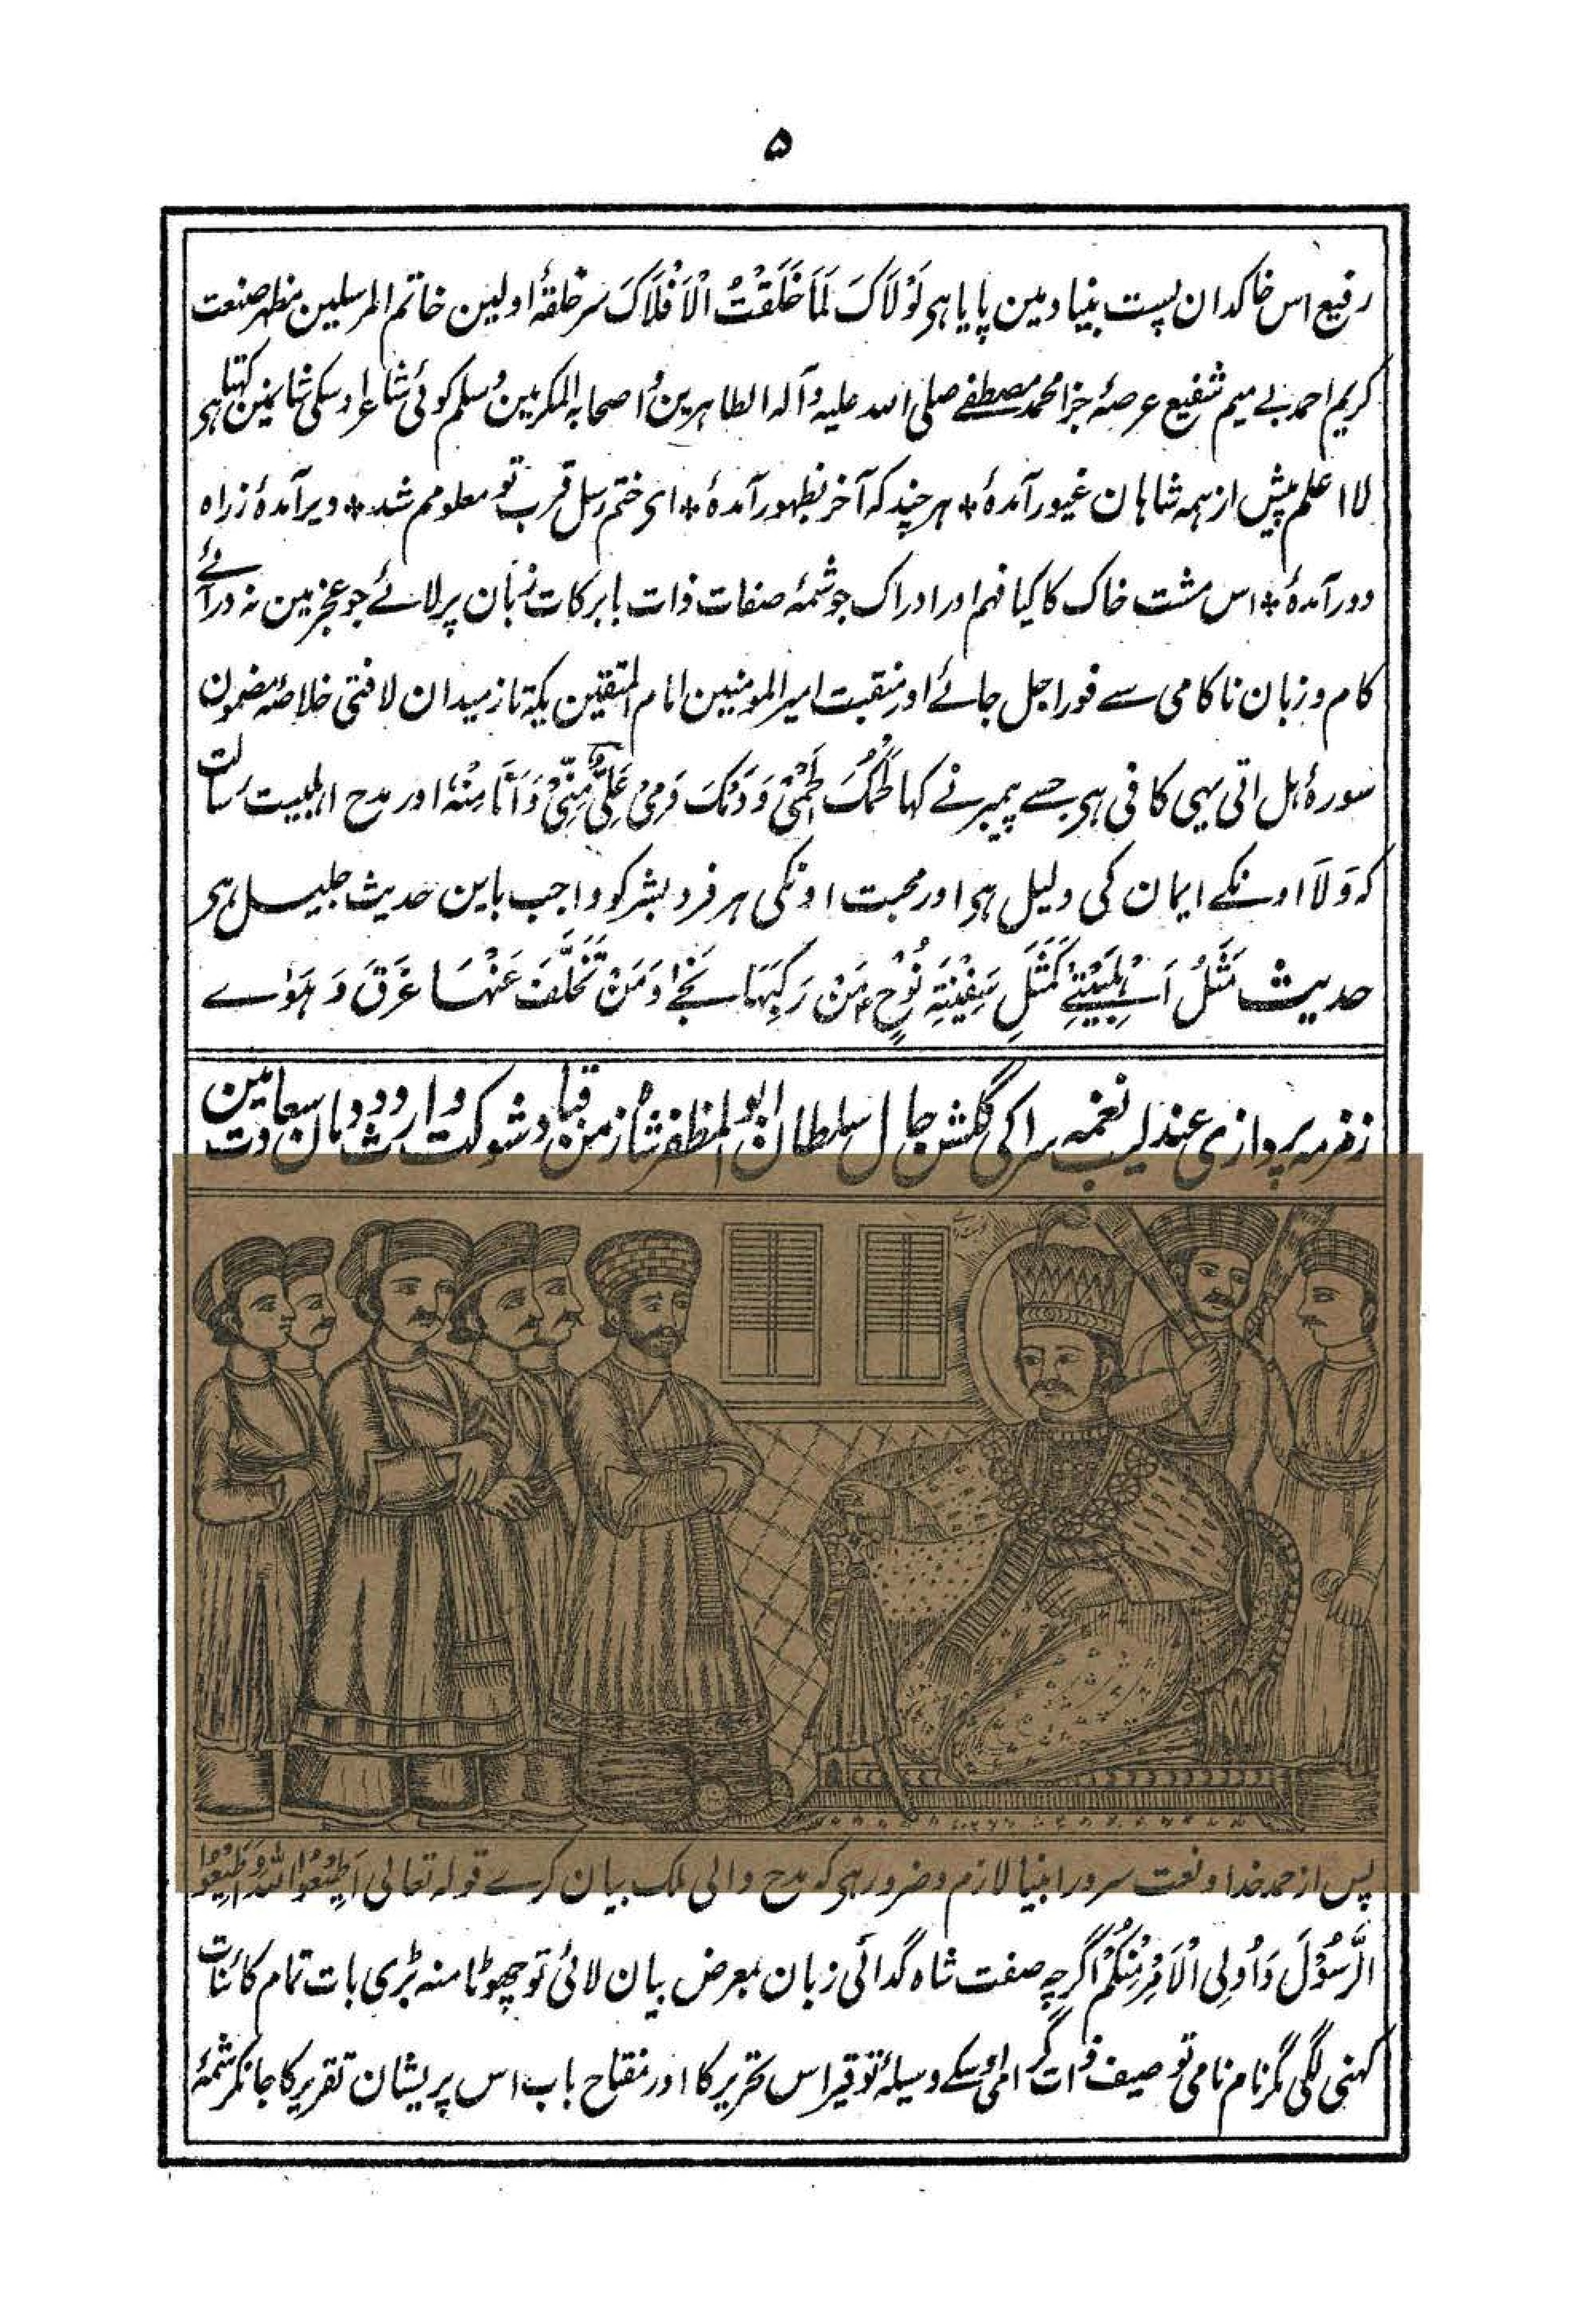 ۵
رفیع اس خاکدان پست بنیاد مین پایا ہی لَوْلَاکَ لَمَا خَلَقْتُ الْاَفْلَاکَ سرحلقۂ اولین خاتم المرسلین مظہر صنعت
کریم احمد بے میم شفیع عرصۂ جزا محمد مصطفے صلی اللہ علیہ و آلہ الطاہرین و اصحابہ المکرمین وسلم کوئی شاعر اوسکی شانمین کہتا ہی
لا اعلم پیش از ہمہ شاہان غیور آمدۂ * ہر چند کہ آخر بظہور آمدۂ * ای ختم رسل قرب تو معلومم شد * دیر آمدۂ ز راہ
دور آمدۂ * اس مشت خاک کا کیا فہم اور ادراک جو شمۂ صفات ذات بابرکات زبان پر لائے جو عجز مین نہ در آئے
کام و زبان ناکامی سے فورا جل جائے اور منقبت امیر المومنین امام المتقین یکہ تاز میدان لافتی خلاصۂ مضمون
سورۂ ہل اتی یہی کافی ہی جسے پیمبر نے کہا لَحْمُکَ لَحْمِیْ وَ دَمُکَ دَمِیْ عَلِیٌّ مِنِّیْ وَ اَنَا مِنْهُ اور مدح اہلبیت رسالت
کہ وَلَا اونکے ایمان کی دلیل ہی اور محبت اونکی ہر فرد بشر کو واجب باین حدیث جلیل ہی
حدیث مَثَلُ اَہْلِبَیْتِیْ کَمَثَلِ سَفِیْنَةِ نُوْحٍ مَنْ رَکِبَہَا نَجٰے وَ مَنْ تَخَلَّفَ عَنْہَا غَرَقَ وَ ہَوٰے
زمزمہ پردازی عندلیب نغمہ سرا کی گلشن حال سلطان ابو المظفر شاہ زمن قباد شوکت وارث دودمان سعادت مین
پس از حمد خدا و نعت سرور انبیا لازم و ضرور ہی کہ مدح والی ملک بیان کرے قولہ تعالی اَطِیْعُوا اللّٰہَ وَ اَطِیْعُوا
الرَّسُوْلَ وَ اُولِی الْاَمْرِ مِنْکُمْ اگرچہ صفت شاہ گدائی زبان بمعرض بیان لائی تو چھوٹا منہ بڑی بات تمام کائنات
کہنی لگی مگر نام نامی توصیف ذات گرامی اوسکے وسیلۂ توقیر اس تحریر کا اور مفتاح باب اس پریشان تقریر کا جانکر شمۂ